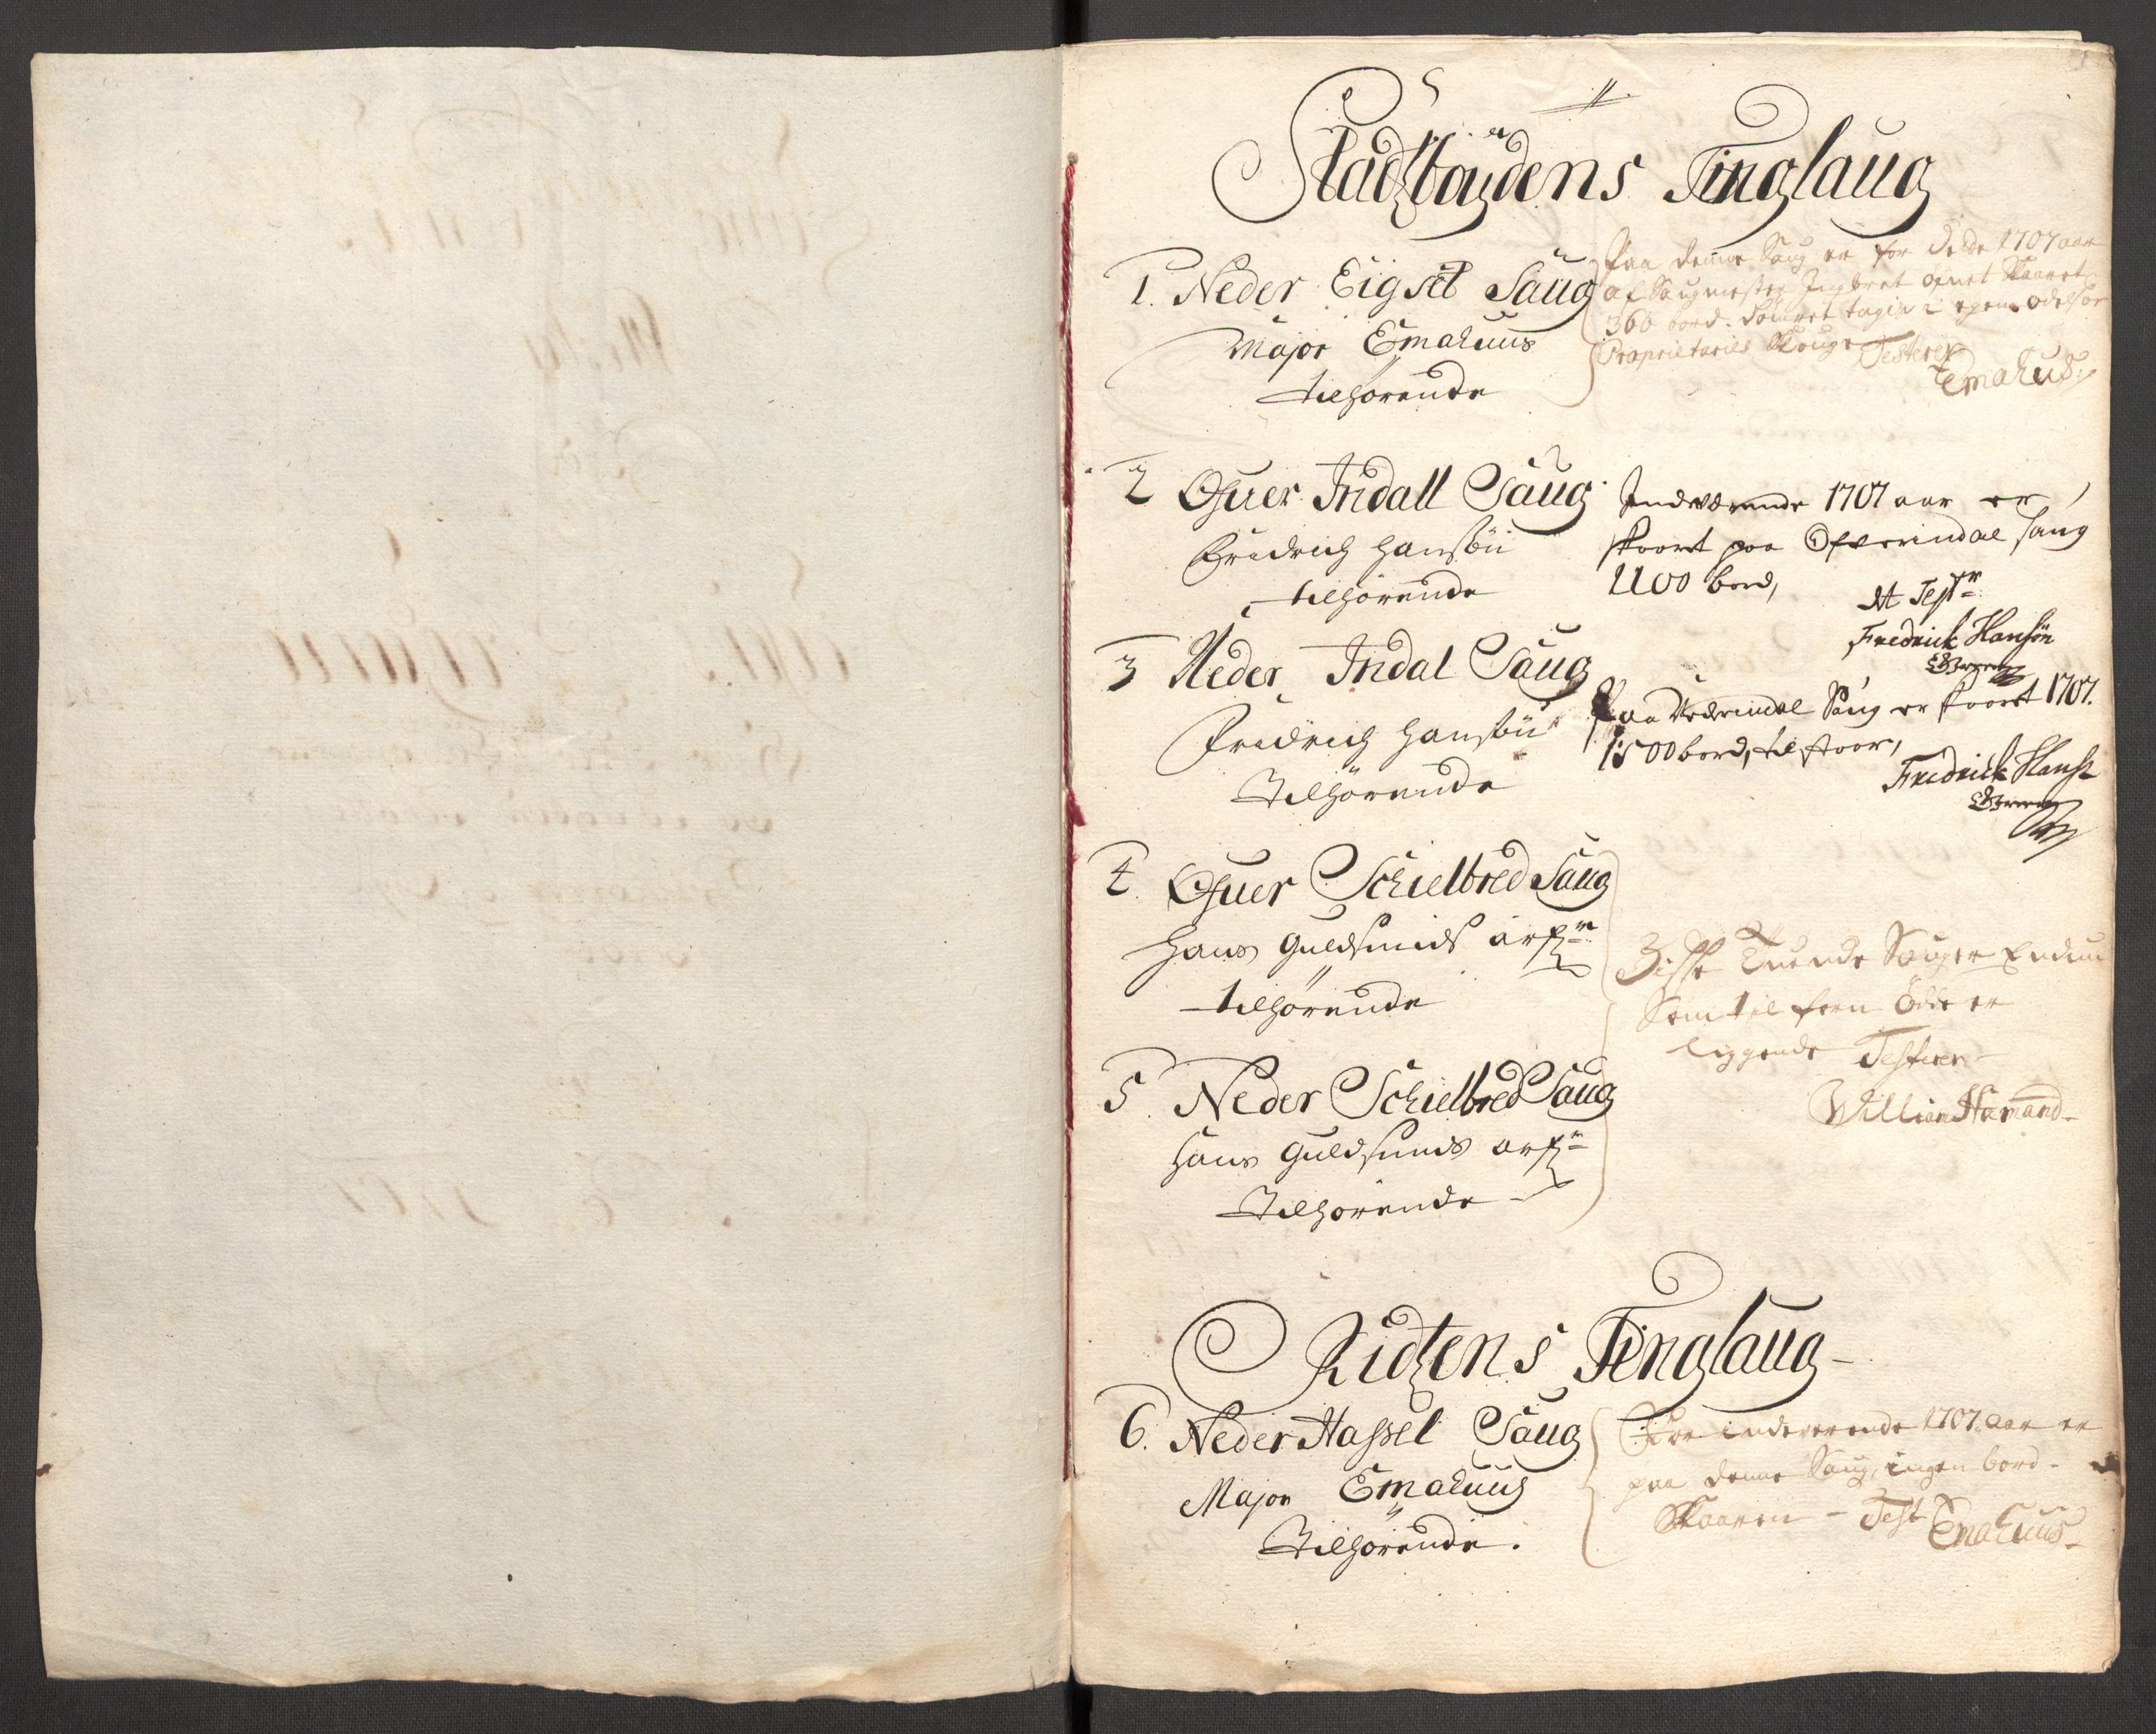 Stadsbøÿdens Tinglaug
1. Neder Eigset Saug
Major Emahuus
tilhørende
Paa denne Saug er for dette 1707 aar
af Saugmester Ingbret Skaaret
360 bord. tagen i egen odels
Proprietaries Skouge Testerer
Emahuus
2 Ofuer Indall Saug
Fridrich Hansøn
tilhørende
Indwærende 1707 aar er
skaaret paa Ofverindal saug
1100 bord,
At Test.r
Fredrick Hansøn
3 Neder Indal Saug
Fredrich Hansøn
Tilhørende
Paa Nederindal Saug er skaaret 1707.
1500 bord, tilstaar,
Fredrick Hans.
4. Ofuer Schielbred Saug
Hans Guldsmids arf.r
tilhørende
5. Neder Schielbred Saug
Hans Guldsmids arf.r
Tilhørende
Disse Tuende Sauger Endnu
Som til forn Öde er
liggende Testerer
William Hamand
Ridsens Tinglaug
6. Neder Hassel Saug
Major Emahuus
Tilhørende.
For indeverende 1707. aar er
paa denne Saug, ingen bord
Skaaren - Test
Emahuus